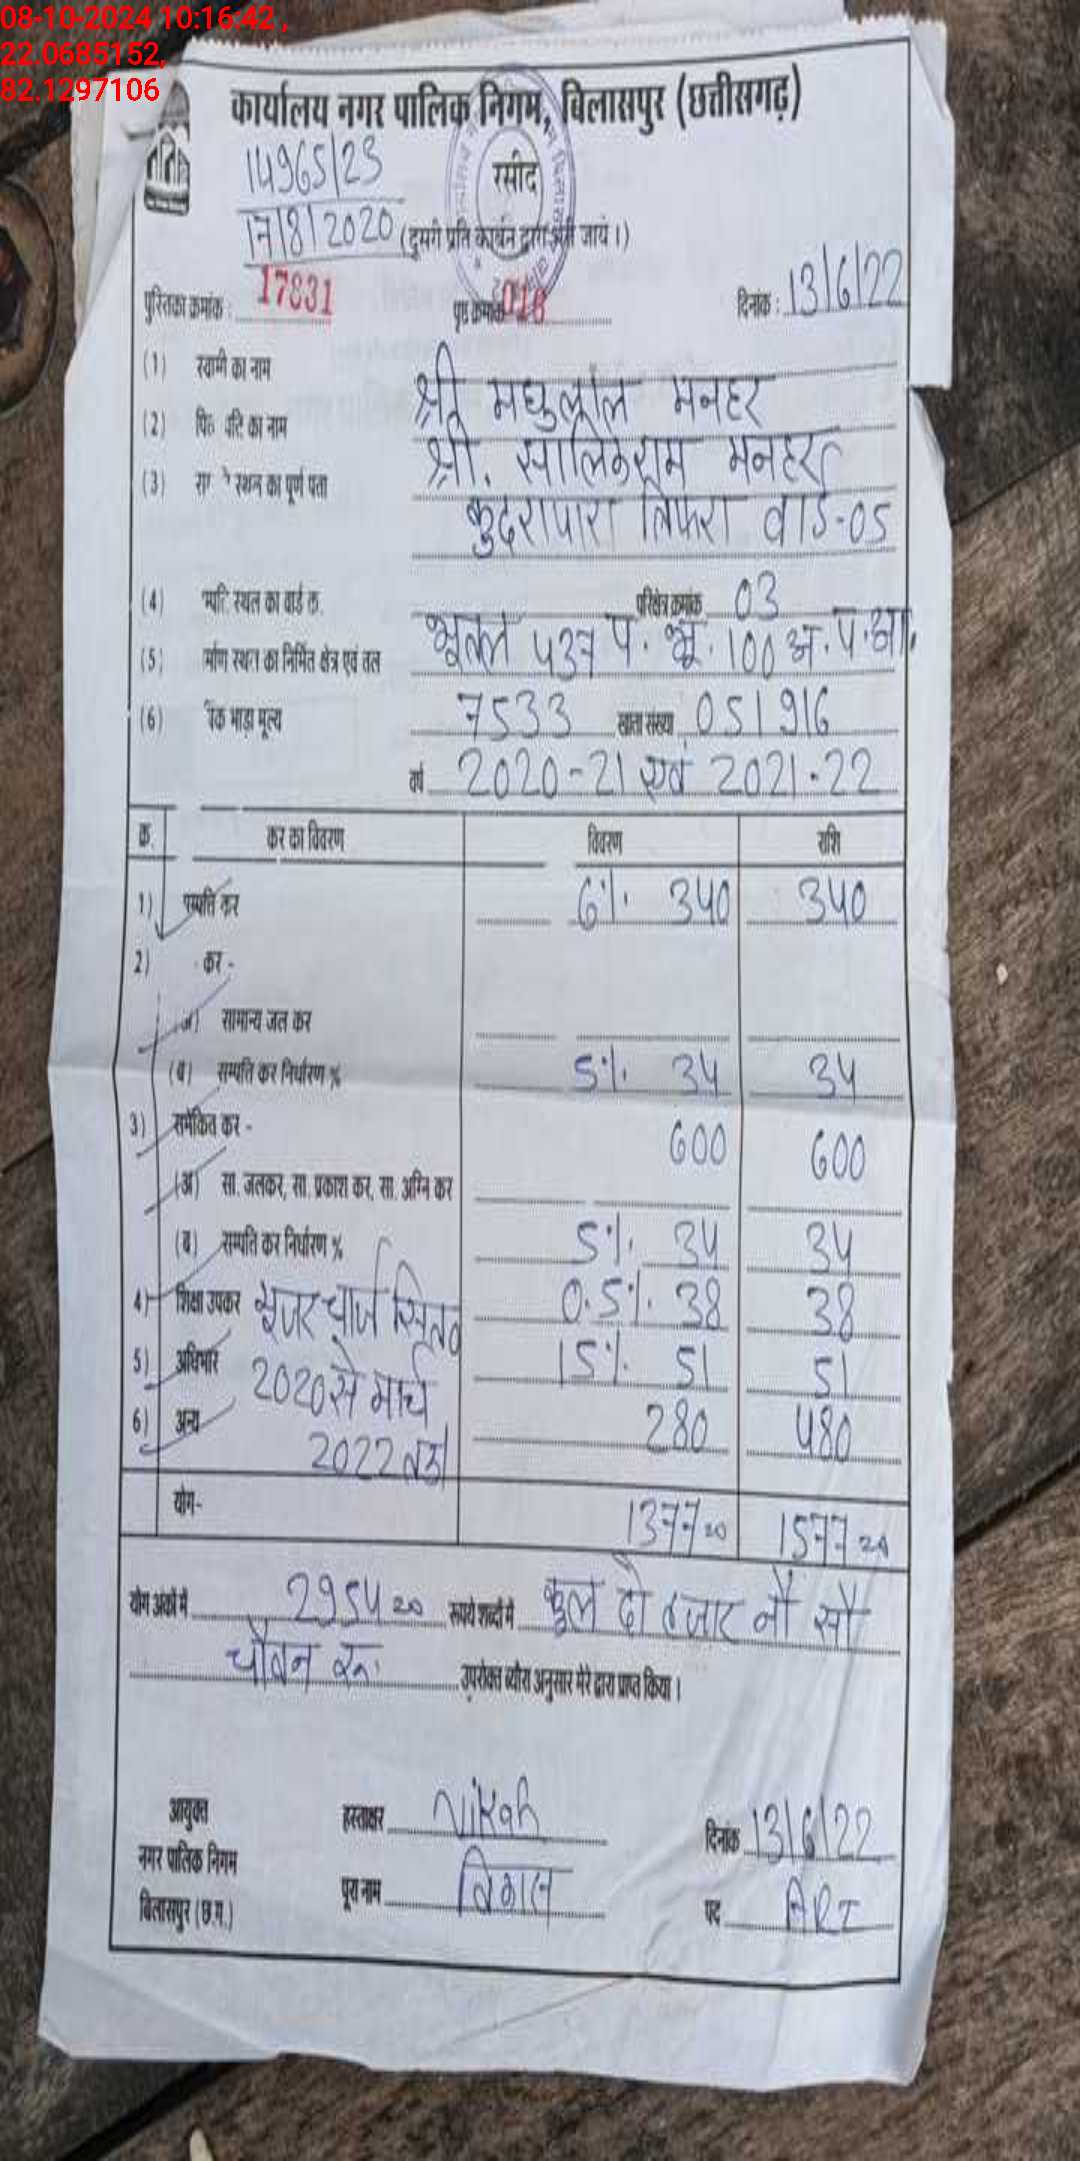 08-10-2024 10:16:42 ,
22.0685152,
82.1297106
कार्यालय नगर पालिक निगम, बिलासपुर (छत्तीसगढ़)
14965/23
रसीद
17/8/2020 (दुसरी प्रति कार्बन द्वारा भरी जायं।)
पुस्तिका क्रमांक : 17831 पृष्ठ क्रमांक 016 दिनांक : 13/6/22
(1) स्वामी का नाम श्री मधुलाल मनहर
(2) का नाम श्री. सालिकराम मनहर
(3) स्थल का पूर्ण पता कुदरापारा तिफरा वार्ड-05
(4) स्थल का वार्ड क्र. परिक्षेत्र क्रमांक 03
(5) स्थल का निर्मित क्षेत्र एवं तल भूतल 437 प. भू. 100 अ. प. आ.
(6) भाड़ा मूल्य 7533 खाता संख्या 051916
वर्ष 2020-21 एवं 2021-22
क्र. कर का विवरण विवरण राशि
1) सम्पत्ति कर 6% 340 340
2) कर -
(अ) सामान्य जल कर
(ब) सम्पत्ति कर निर्धारण % 5% 34 34
3) समेकित कर - 600 600
(अ) सा. जलकर, सा. प्रकाश कर, सा. अग्नि कर
(ब) सम्पत्ति कर निर्धारण % 5% 34 34
4) शिक्षा उपकर यूजर चार्ज सितं० 0.5% 38 38
5) अधिभार 2020 से मार्च 15% 51 51
6) अन्य 2022 तक 280 480
योग- 1377 20 1577 20
योग अंकों में 2954 20 रूपये शब्दों में कुल दो हजार नौ सौ
चौवन रू. उपरोक्त ब्यौरा अनुसार मेरे द्वारा प्राप्त किया।
आयुक्त हस्ताक्षर Vikash दिनांक 13/6/22
नगर पालिक निगम पूरा नाम विकास
बिलासपुर (छ.ग.) पद ARI